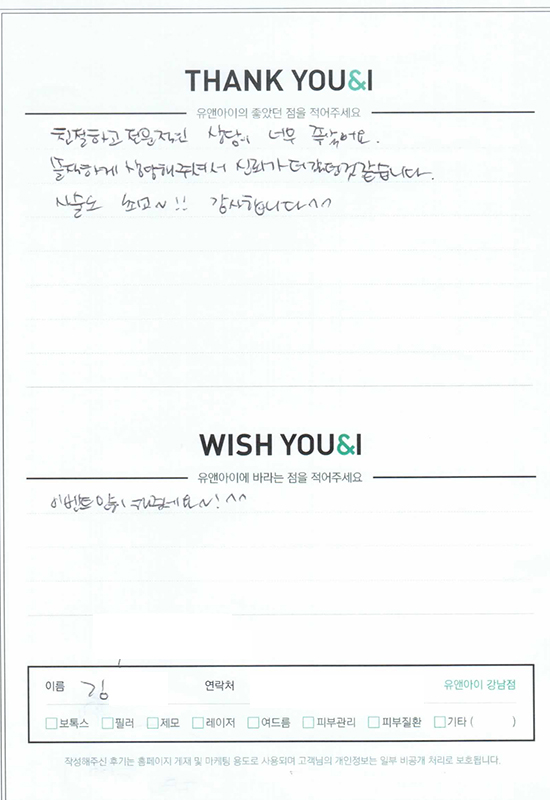 THANK YOU&I
유앤아이의 좋았던 점을 적어주세요
친절하고 전문적인 상담이 너무 좋았어요.
꼼꼼하게 상담해주셔서 신뢰가 더 갔던것같습니다.
시술도 최고~!! 감사합니다^^
WISH YOU&I
유앤아이에 바라는 점을 적어주세요
이벤트 많이 해주세요~!^^
이름 김 연락처 유앤아이 강남점
보톡스 필러 제모 레이저 여드름 피부관리 피부질환 기타 ( )
작성해주신 후기는 홈페이지 게재 및 마케팅 용도로 사용되며 고객님의 개인정보는 일부 비공개 처리로 보호됩니다.